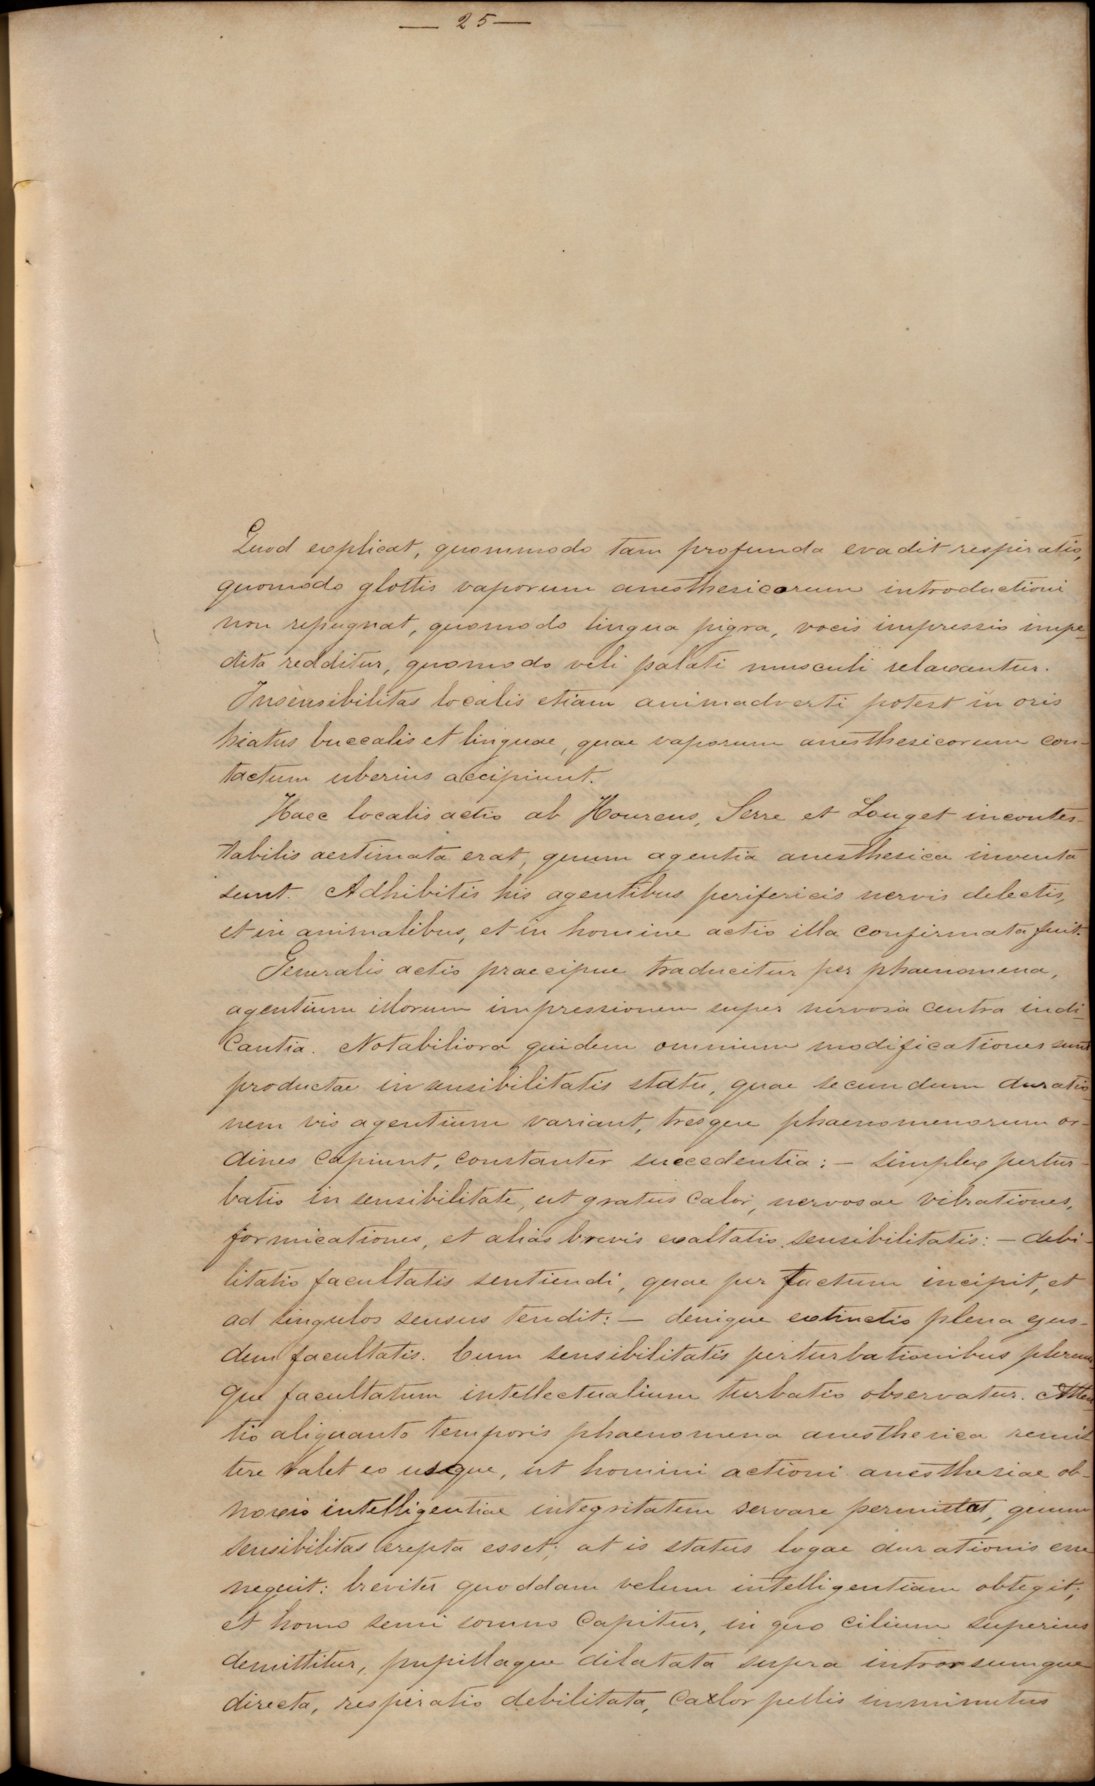 — 25 —
Quod explicat, quommodo tam profunda evadit respiratio,
quomodo glottis vaporum anesthesicorum introductioni
non repugnat, quomodo lingua pigra, vocis impressio impe-
dita redditur, quomodo veli palati musculi relaxantur.
Insensibilitas localis etiam animadverti potest in oris
hiatus buccalis et linguae, quae vaporum anesthesicorum con-
tactum uberius accipiunt.
Haec localis actio ab Flourens, Serre et Longet incontes-
tabilis aestimata erat, quum agentia anesthesica inventa
sunt. Adhibitis his agentibus perifericis nervis delectis,
et in animalibus, et in homine actio illa confirmata fuit.
Generalis actio praecipue traducitur per phaenomena,
agentium illorum impressionem super nervosa centra indi-
cantia. Notabiliora quidem omnium modificationes sunt
productae in sensibilitatis statu, quae secundum duratio-
nem vis agentium variant, tresque phaenomenorum or-
dines capiunt, constanter succedentia: — simplex pertur-
batio in sensibilitate, ut gratus calor, nervosae vibrationes,
formicationes, et alias brevis exaltatio sensibilitatis: — debi-
litatio facultatis sentiendi, quae per tactum incipit, et
ad singulos sensus tendit: — denique extinctio plena ejus-
dem facultatis. Cum sensibilitatis perturbationibus plerum
que facultatum intellectualium turbatio observatur. Atten
tio aliquanto temporis phaenomena anesthesica remit
tere valet eo usque, ut homini actioni anesthesiae ob-
noxio intelligentiae integritatem servare permittat, quum
sensibilitas erepta esset; at is status logae durationis esse
nequit: breviter quoddam velum intelligentiam obtegit;
et homo semi somno capitur, in quo cilium superius
demittitur, pupillaque dilatata supra introrsumque
directa, respiratio debilitata, calor pellis imminutus